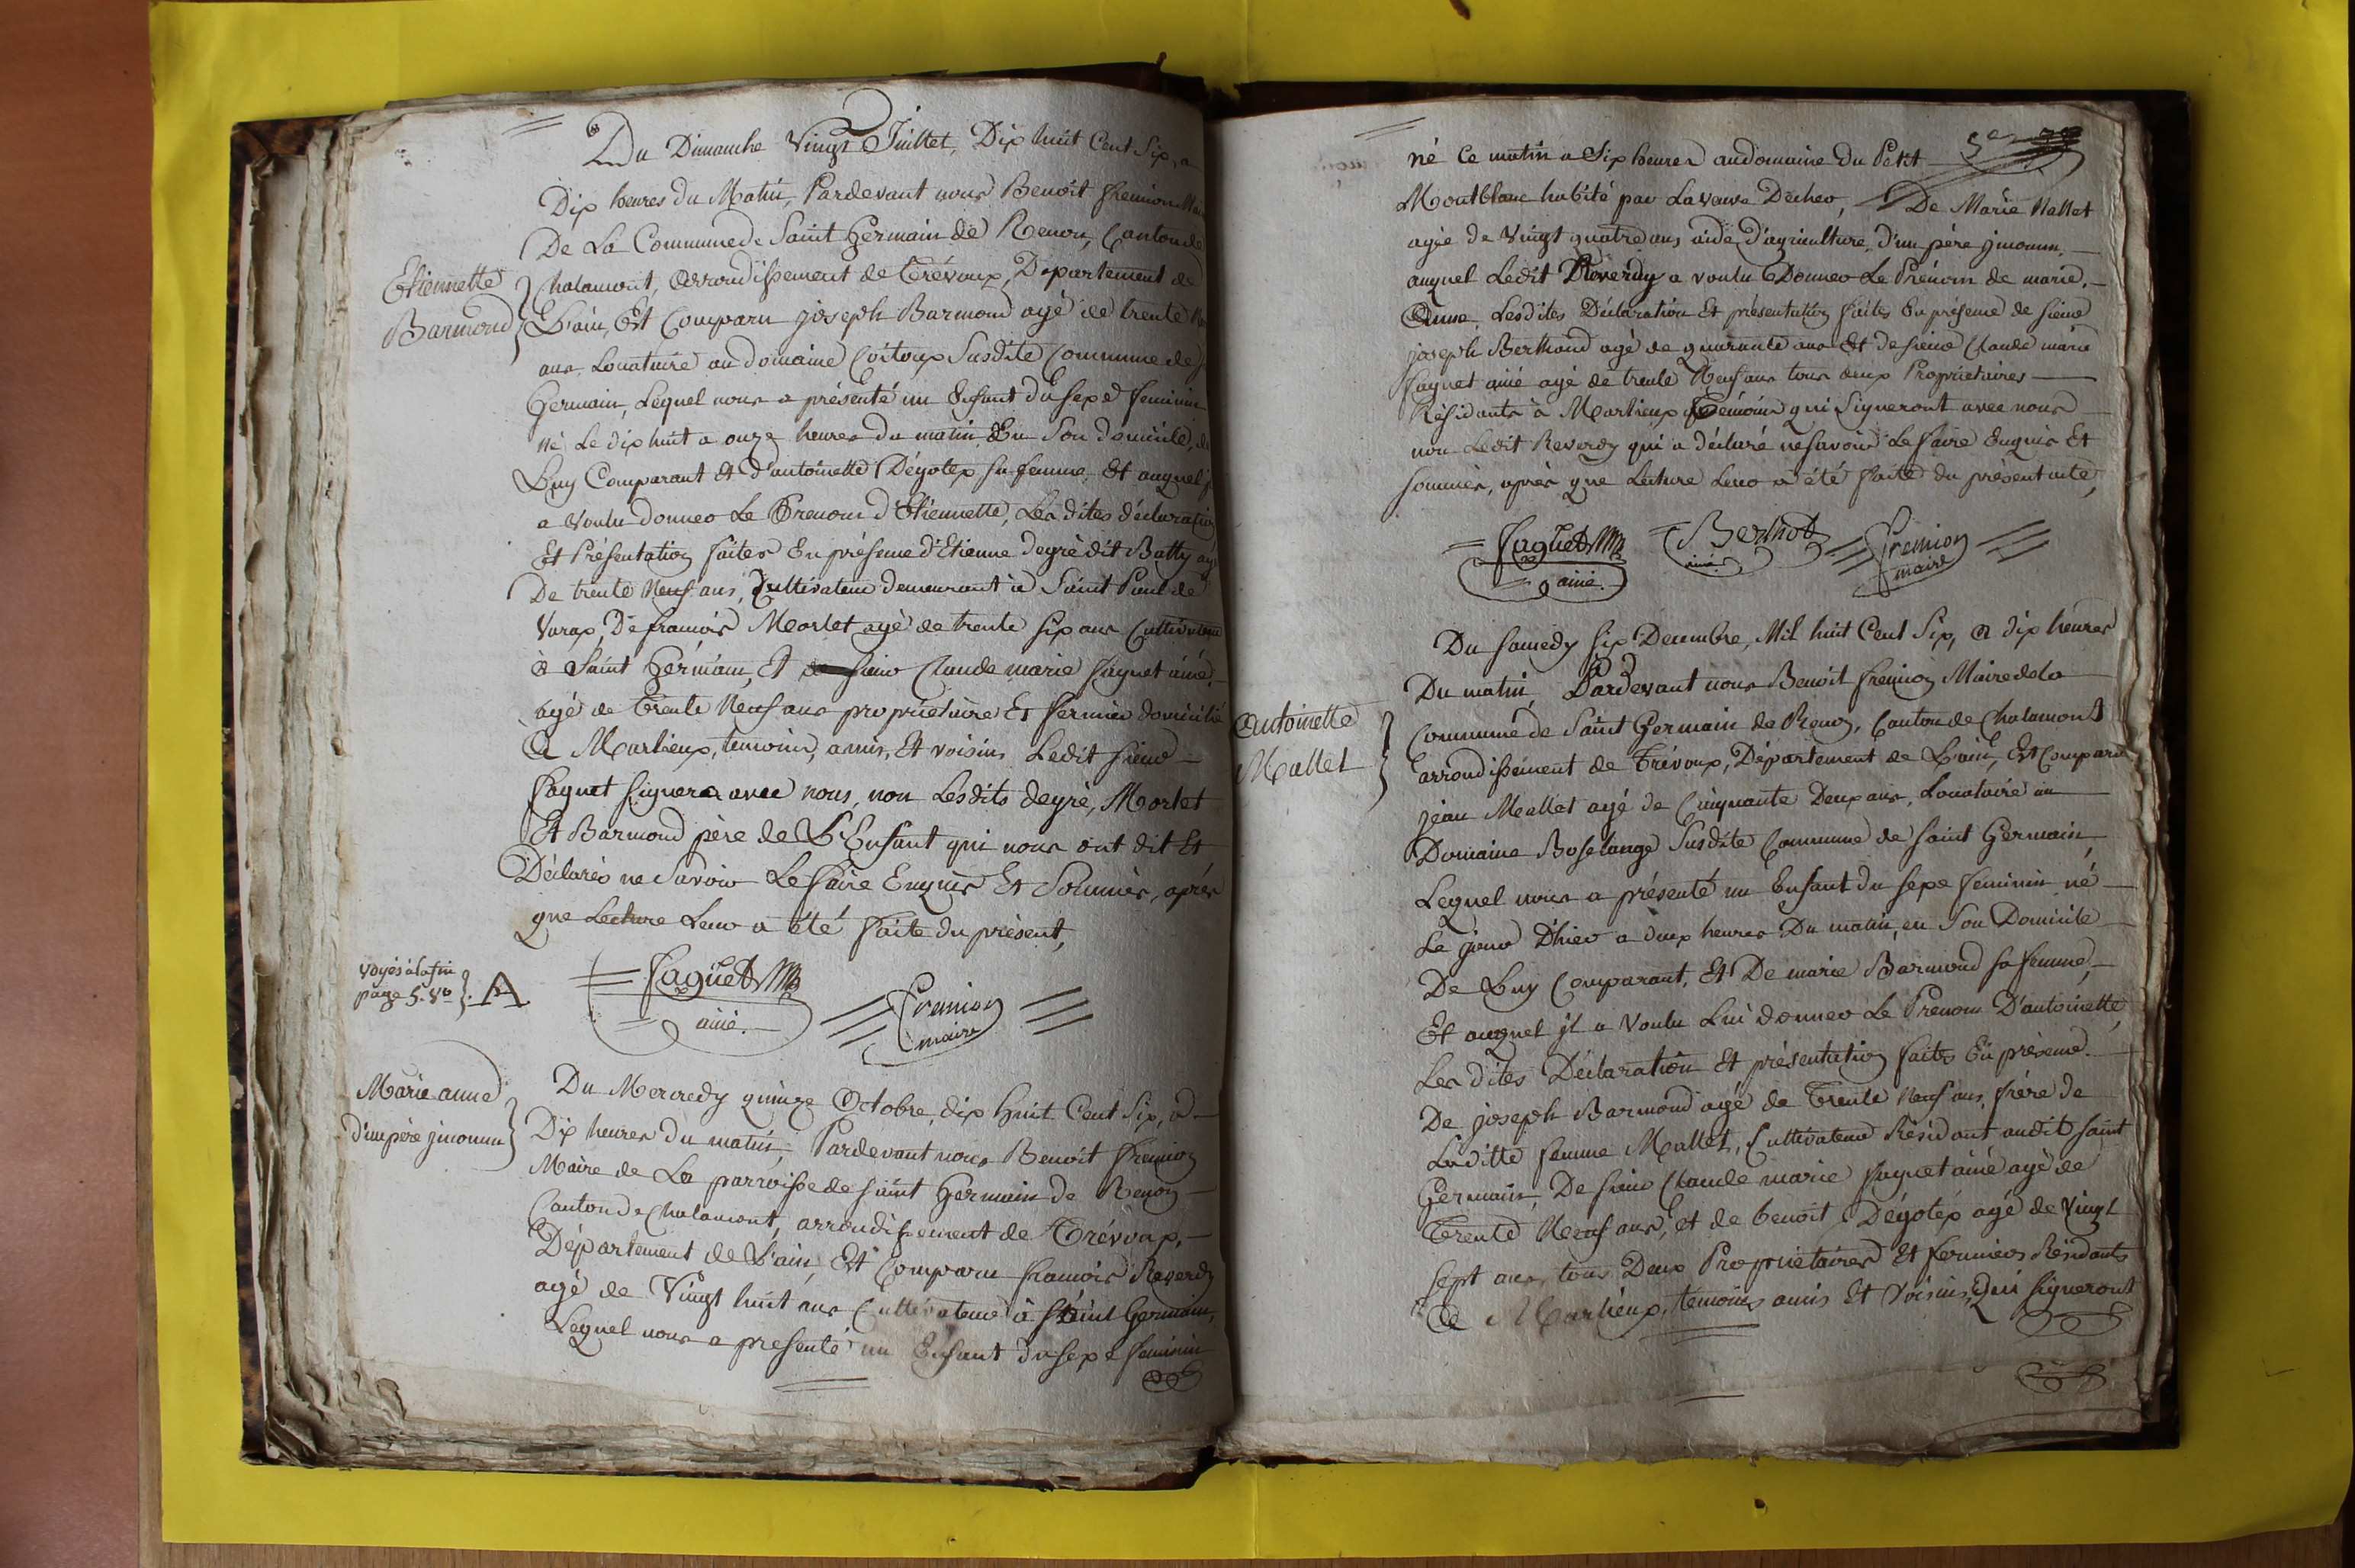 Du Dimanche Vingt Juillet, Dix huit Cent Six, a
Dix heures du Matin, Pardevant nous Benoit fremion Mair
De La Commune de Saint Germain de Renon, Canton de
Etiennette
Barmond
Chalamont, Arrondissement de Trévoux, Département de
L'ain, Est Comparu joseph Barmond agé de trente
ans, Locataire au domaine Coitoux Susdite Commune de
Germain, Lequel nous a présenté un Enfant du sexe feminin
né Le dix huit a onze heures du matin En Son domicile, de
Luy Comparant et d'antoinette Dégotex sa femme, et auquel
a Voulu donner Le Prenom d'Etiennette, Les dites déclaration
Et Présentation faites En présence d'Etienne degrè dit Batty agé
De trente Neuf ans, Cultivateur demeurant à Saint Paul de
Varax, De francois Morlet agé de trente six ans Cultivateur
à Saint Germain, Et sieur Claude marie faguet ainé,
agé de Trente Neuf ans propriétaire Et fermier domicilié
A Marlieux, temoins, amis, Et voisins Ledit sieur
faguet signera avec nous, non Lesdits degrè, Morlet
Et Barmond père de L'Enfant qui nous ont dit Et
Déclarés ne Savoir Le faire Enquis Et Sommès, après
que Lecture Leur a été faite du présent,
voyés à la fin
page 5. Vo
A
faguet
ainé.
fremion
maire
Marie anne
d'un père jnconnu
Du Mercredy quinze Octobre, dix Huit Cent Six, a
Dix heures du matin, Pardevant nous Benoit fremion
Maire de La parroisse de saint Germain de Renon
Canton de Chalamont, arrondissement de Trévoux,
Département de L'ain, Est Comparu francois Reverdy
agé de Vingt huit ans Cultivateur à Saint Germain,
Lequel nous a presenté un Enfant du sexe feminin
né Ce matin a Six heures au domaine du Petit
5e
Montblanc habité par La veuve Decher, De Marie Mallet
agée de Vingt quatre ans aide d'agriculture, d'un père jnconnu,
auquel Ledit Reverdy a voulu Donner Le Prénom de marie,
Anne. Lesdites Déclaration Et présentation faites En présence de sieur
joseph Berthoud agé de quarante ans Et de sieur Claude marie
faguet ainé agé de trente Neuf ans tous deux Proprietaires
Résidants à Marlieux temoins qui Signeront avec nous
non Ledit Reverdy qui a déclaré ne savoir Le faire Enquis Et
sommès, après que Lecture Leur a été faite du présent acte,
faguet
ainé.
Berthod
ainé
fremion
maire
Du Samedy six Decembre, Mil huit Cent Six, A dix heures
Du matin, Pardevant nous Benoit fremion Maire de la
Antoinette
Mallet
Commune de Saint Germain de Renon, Canton de Chalamont
arrondissement de Trévoux, Département de L'ain, Est Comparu
jean Mallet agé de Cinquante Deux ans, Locataire au
Domaine Boselange Susdite Commune de saint Germain,
Lequel nous a présenté un Enfant du sexe feminin né
Le jour D'hier a deux heures Du matin, en Son Domicile
De Luy Comparant, Et De marie Barmond sa femme,
Et auquel jl a Voulu Lui donner Le Prenom D'antoinette,
Les dites Déclaration Et présentation faites En présence
De joseph Barmond agé de Trente Neuf ans, frére de
Laditte femme Mallet, Cultivateur Résidant audit saint
Germain, De sieur Claude marie faguet ainé agé de
Trente Neuf ans, et de benoit Dégotéx agé de Vingt
sept ans, tous Deux Proprietaires Et fermiers Résidants
A Marlieux, temoins amis Et Voisins, Qui signeront